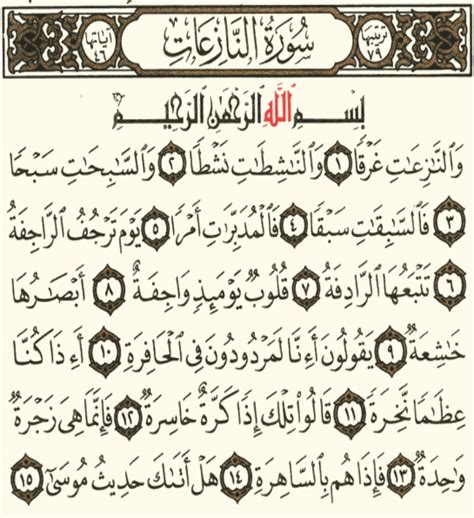 ترتيبها ٧٩ سُورَةُ النَّازِعَاتِ آياتها ٤٦
بِسْمِ اللَّهِ الرَّحْمٰنِ الرَّحِيمِ
وَالنَّازِعَاتِ غَرْقًا ١ وَالنَّاشِطَاتِ نَشْطًا ٢ وَالسَّابِحَاتِ سَبْحًا
٣ فَالسَّابِقَاتِ سَبْقًا ٤ فَالْمُدَبِّرَاتِ أَمْرًا ٥ يَوْمَ تَرْجُفُ الرَّاجِفَةُ
٦ تَتْبَعُهَا الرَّادِفَةُ ٧ قُلُوبٌ يَوْمَئِذٍ وَاجِفَةٌ ٨ أَبْصَارُهَا
خَاشِعَةٌ ٩ يَقُولُونَ أَءِنَّا لَمَرْدُودُونَ فِي الْحَافِرَةِ ١٠ أَءِذَا كُنَّا
عِظَامًا نَّخِرَةً ١١ قَالُوا تِلْكَ إِذًا كَرَّةٌ خَاسِرَةٌ ١٢ فَإِنَّمَا هِيَ زَجْرَةٌ
وَاحِدَةٌ ١٣ فَإِذَا هُم بِالسَّاهِرَةِ ١٤ هَلْ أَتَاكَ حَدِيثُ مُوسَىٰ ١٥